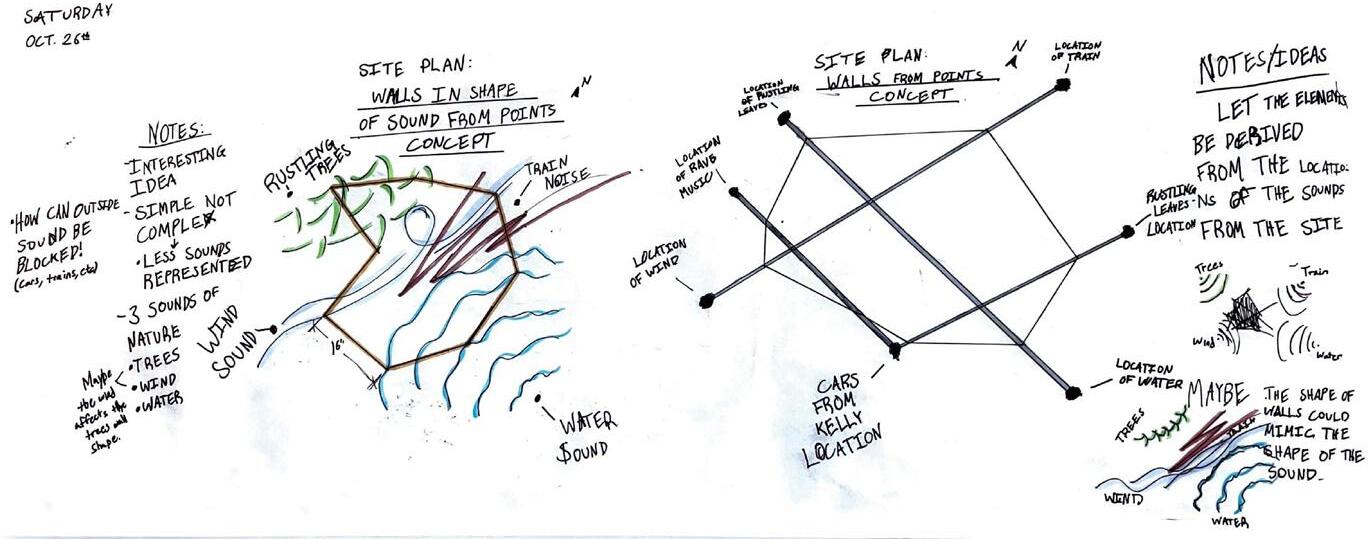 SATURDAY
OCT. 26th
SITE PLAN:
WALLS IN SHAPE
OF SOUND FROM POINTS
CONCEPT
N
NOTES:
-INTERESTING
IDEA
- SIMPLE NOT
COMPLEX
• LESS SOUNDS
REPRESENTED
-3 SOUNDS OF
NATURE
•TREES
•WIND
•WATER
•HOW CAN OUTSIDE
SOUND BE
BLOCKED!
(cars, trains, etc)
Maybe
the wind
affects the
trees wall
shape.
RUSTLING
TREES
TRAIN
NOISE
WIND
SOUND
16"
WATER
SOUND
SITE PLAN:
WALLS FROM POINTS
CONCEPT
N
LOCATION
OF TRAIN
LOCATION
OF RUSTLING
LEAVES
LOCATION
OF RAVE
MUSIC
LOCATION
OF WIND
CARS
FROM
KELLY
LOCATION
LOCATION
OF WATER
RUSTLING
LEAVES
LOCATION
NOTES/IDEAS
LET THE ELEMENTS
BE DERIVED
FROM THE LOCATIO-
NS OF THE SOUNDS
FROM THE SITE
Trees
Train
Wind
Water
MAYBE THE SHAPE OF
WALLS COULD
MIMIC THE
SHAPE OF THE
SOUND.
TREES
TRAIN
WIND
WATER